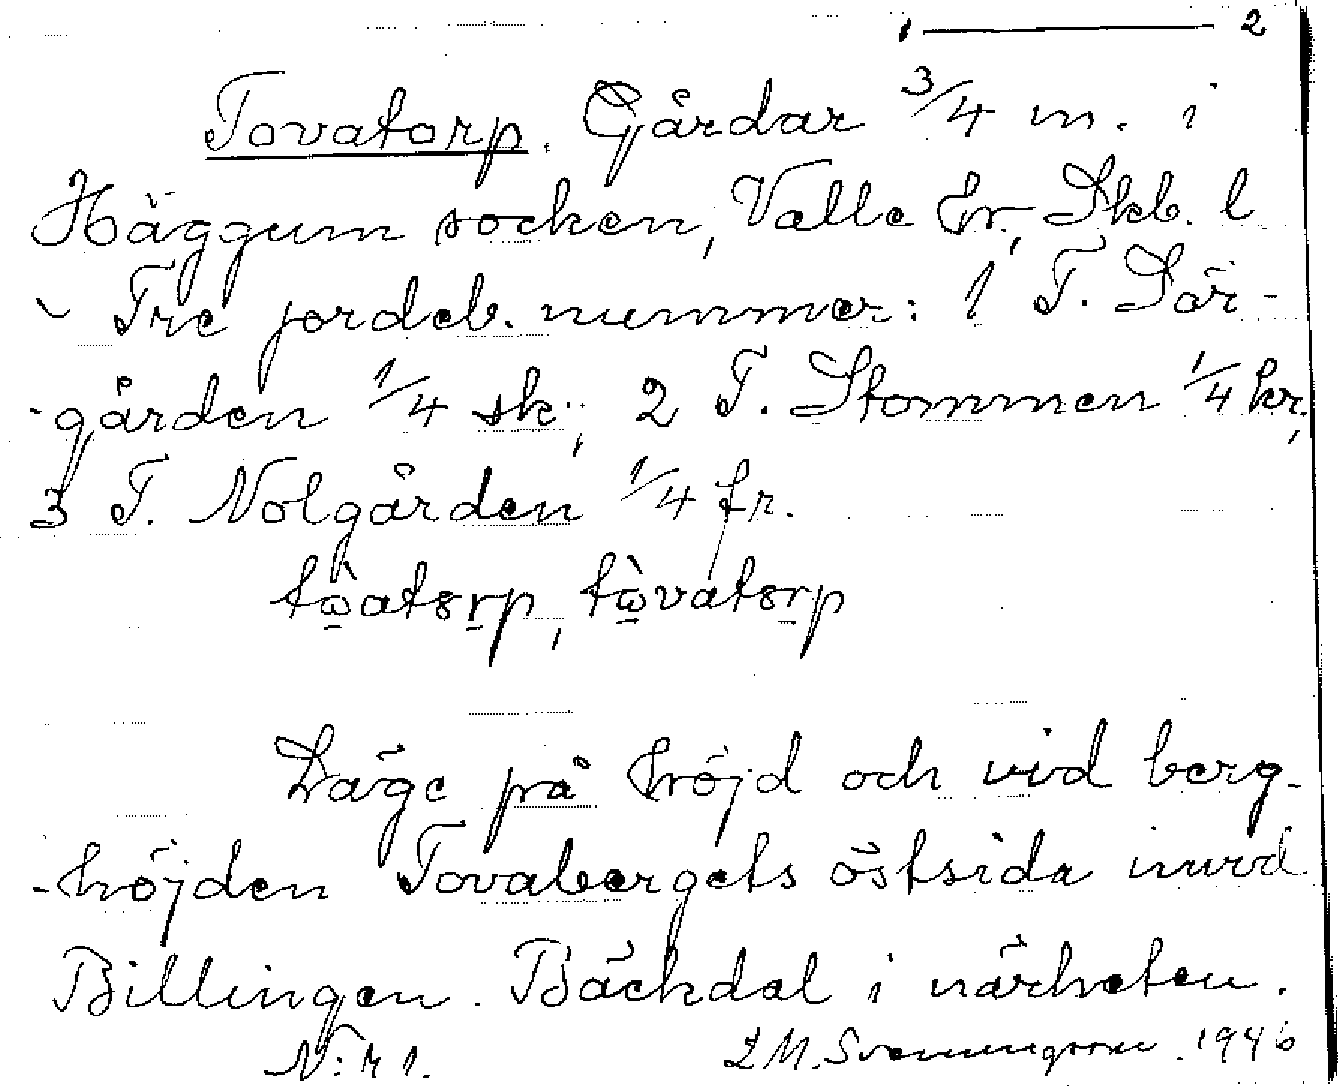 1 ——— 2
Tovatorp. Gårdar 3/4 m. i
Häggum socken, Valle hr, Skb. l
Tre jordeb. nummer: 1 T. Sör-
-gården 1/4 sk.; 2 T. Stommen 1/4 kr,
3 T. Nolgården 1/4 fr.
Läge på höjd och vid berg-
-höjden Tovabergets östsida invid
Billingen. Bäckdal i närheten.
N:r 1. L M. Svenungsson. 1946